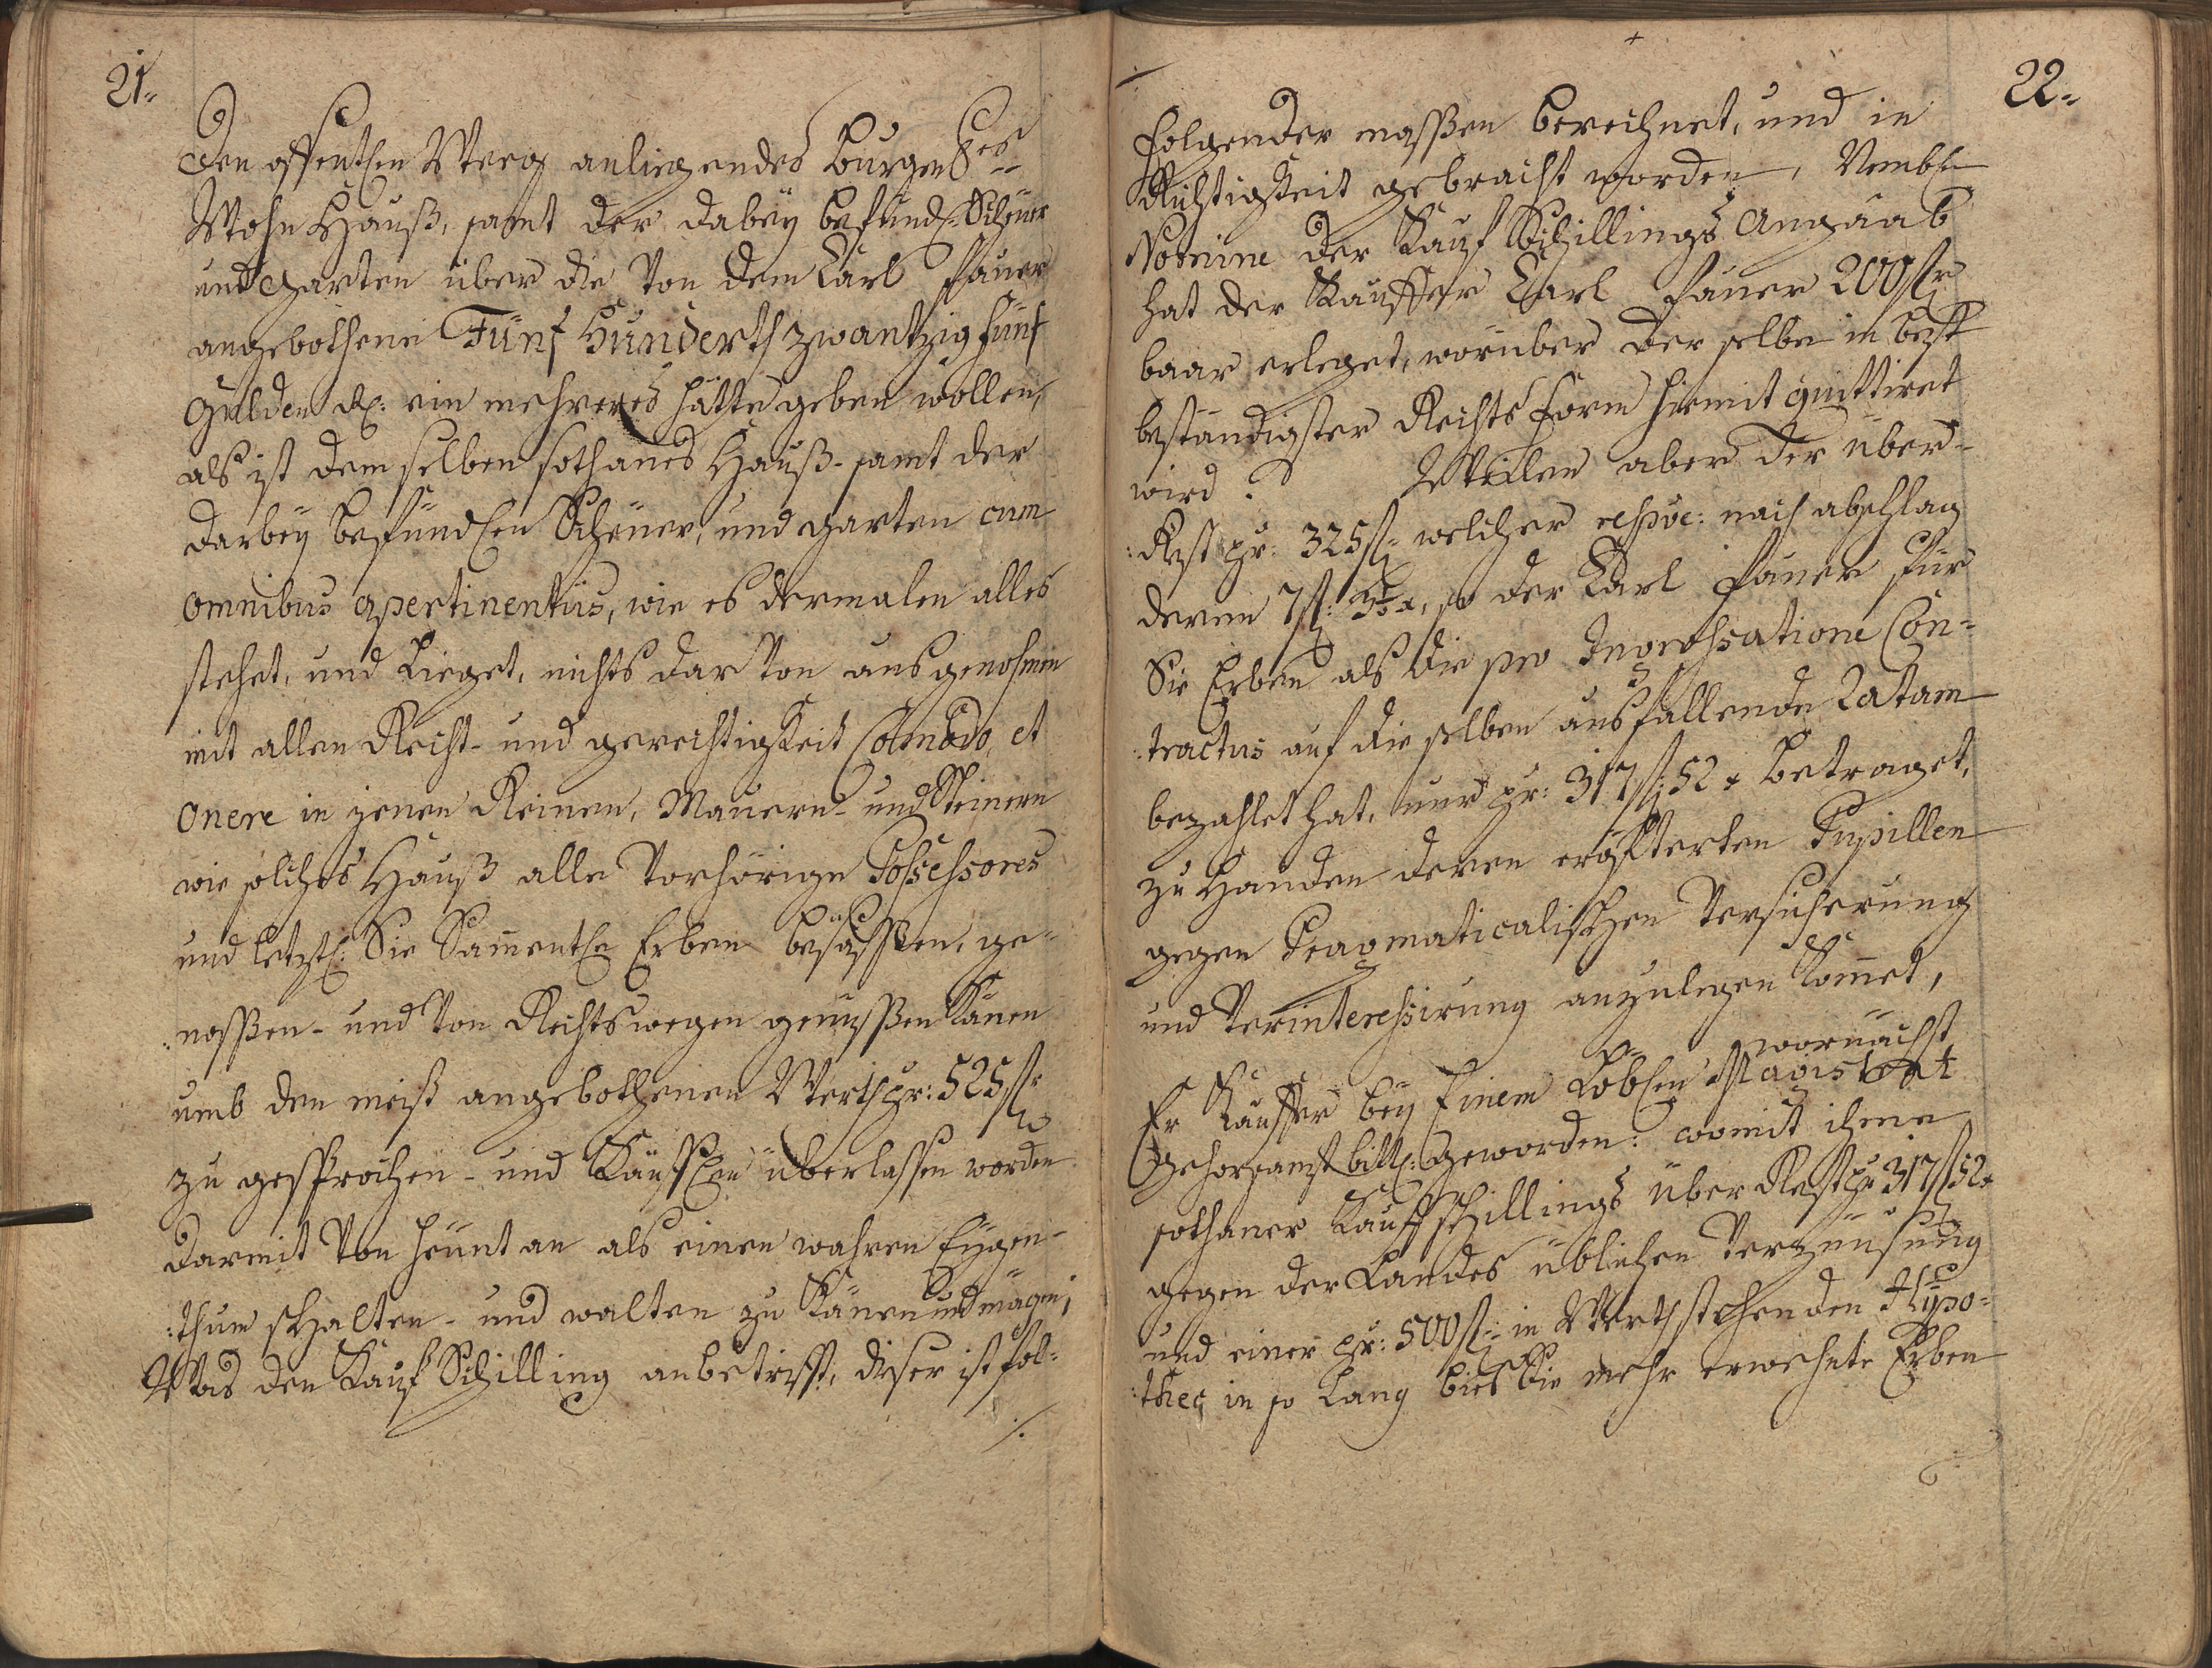 21.
den offentlen Weeg anliegendes burgerles
Wohn Hauß, samt der dabeÿ befundl: Scheüer
und garten über die von dem Carl Pauer
angebothene Fünf Hünderth zwantzig fünf
Gulden Rh: ein mehreres hätte geben wollen,
als ist dem selben sothanes Hauß- samt der
darbeÿ befündlen Scheüer, und garten cum
omnibus apertinentÿs, wie es dermalen alles
stehet, und Lieget, nichts dar von ausgenohmen
mit allen Recht- und gerechtigkeit Comodo, et
onere in jenen Reinen, Mauern- und Steinern
wie solches Hauß alle vorhörige Possessores
und letztl: Sie Sammentle Erben besässen, ge-
:nossen- und von Rechtswegen genüssen känen
umb den meist angebothenen Werth pr: 525 fl
zu gesprochen- und Käuflen überlassen worden
darmit von heünt an als einen wahren Eÿgen-
:thum schalten- und walten zu känen und mägen;
Was den Kauf Schilling anbetrifft, diser ist fol-
./.
22.
folgender massen berechnet, und in
Richtigkeit gebracht worden, Nembl
Nomine der Kauf Schillings Angaab
hat der Kauffer Carl Pauer 200 fl
baar erleget, worüber der selbe in best
beständigster Rechts Form hiemit quittiret
wird. Weilen aber der über-
:Rest pr: 325 fl welcher respve: nach abschlag
deren 7 fl: so der Carl Pauer für
Sie Erben als die pro Ingrossatione Con-
:tractus auf die selben ausfallende Ratam
bezahlet hat, nur pr: 317 fl: 52 x betraget,
zu Handen deren eröfterten Pupillen
gegen Pragmaticalischen Versicherung
und Verinteressirung anzulegen kommet,
wornächst
Er Kauffer beÿ Einem Loblen Magistrat
Gehorsamst bittl: geworden: womit ihme
sothaner Kaufschillings über Rest pr 317 fl 52 x
gegen der Landes üblichen Verzünsung
und einer pr: 500 fl in Werth stehenden Hÿpo-
:thec in so lang bies die mehr erwehnte Erben